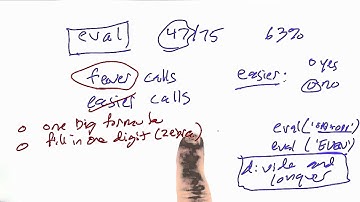 eval 47/75 63%
fewer calls
easier calls
easier: o yes
o no
o one big formula
o fill in one digit (zebra)
eval(
eval('EVEN')
divide and
conquer